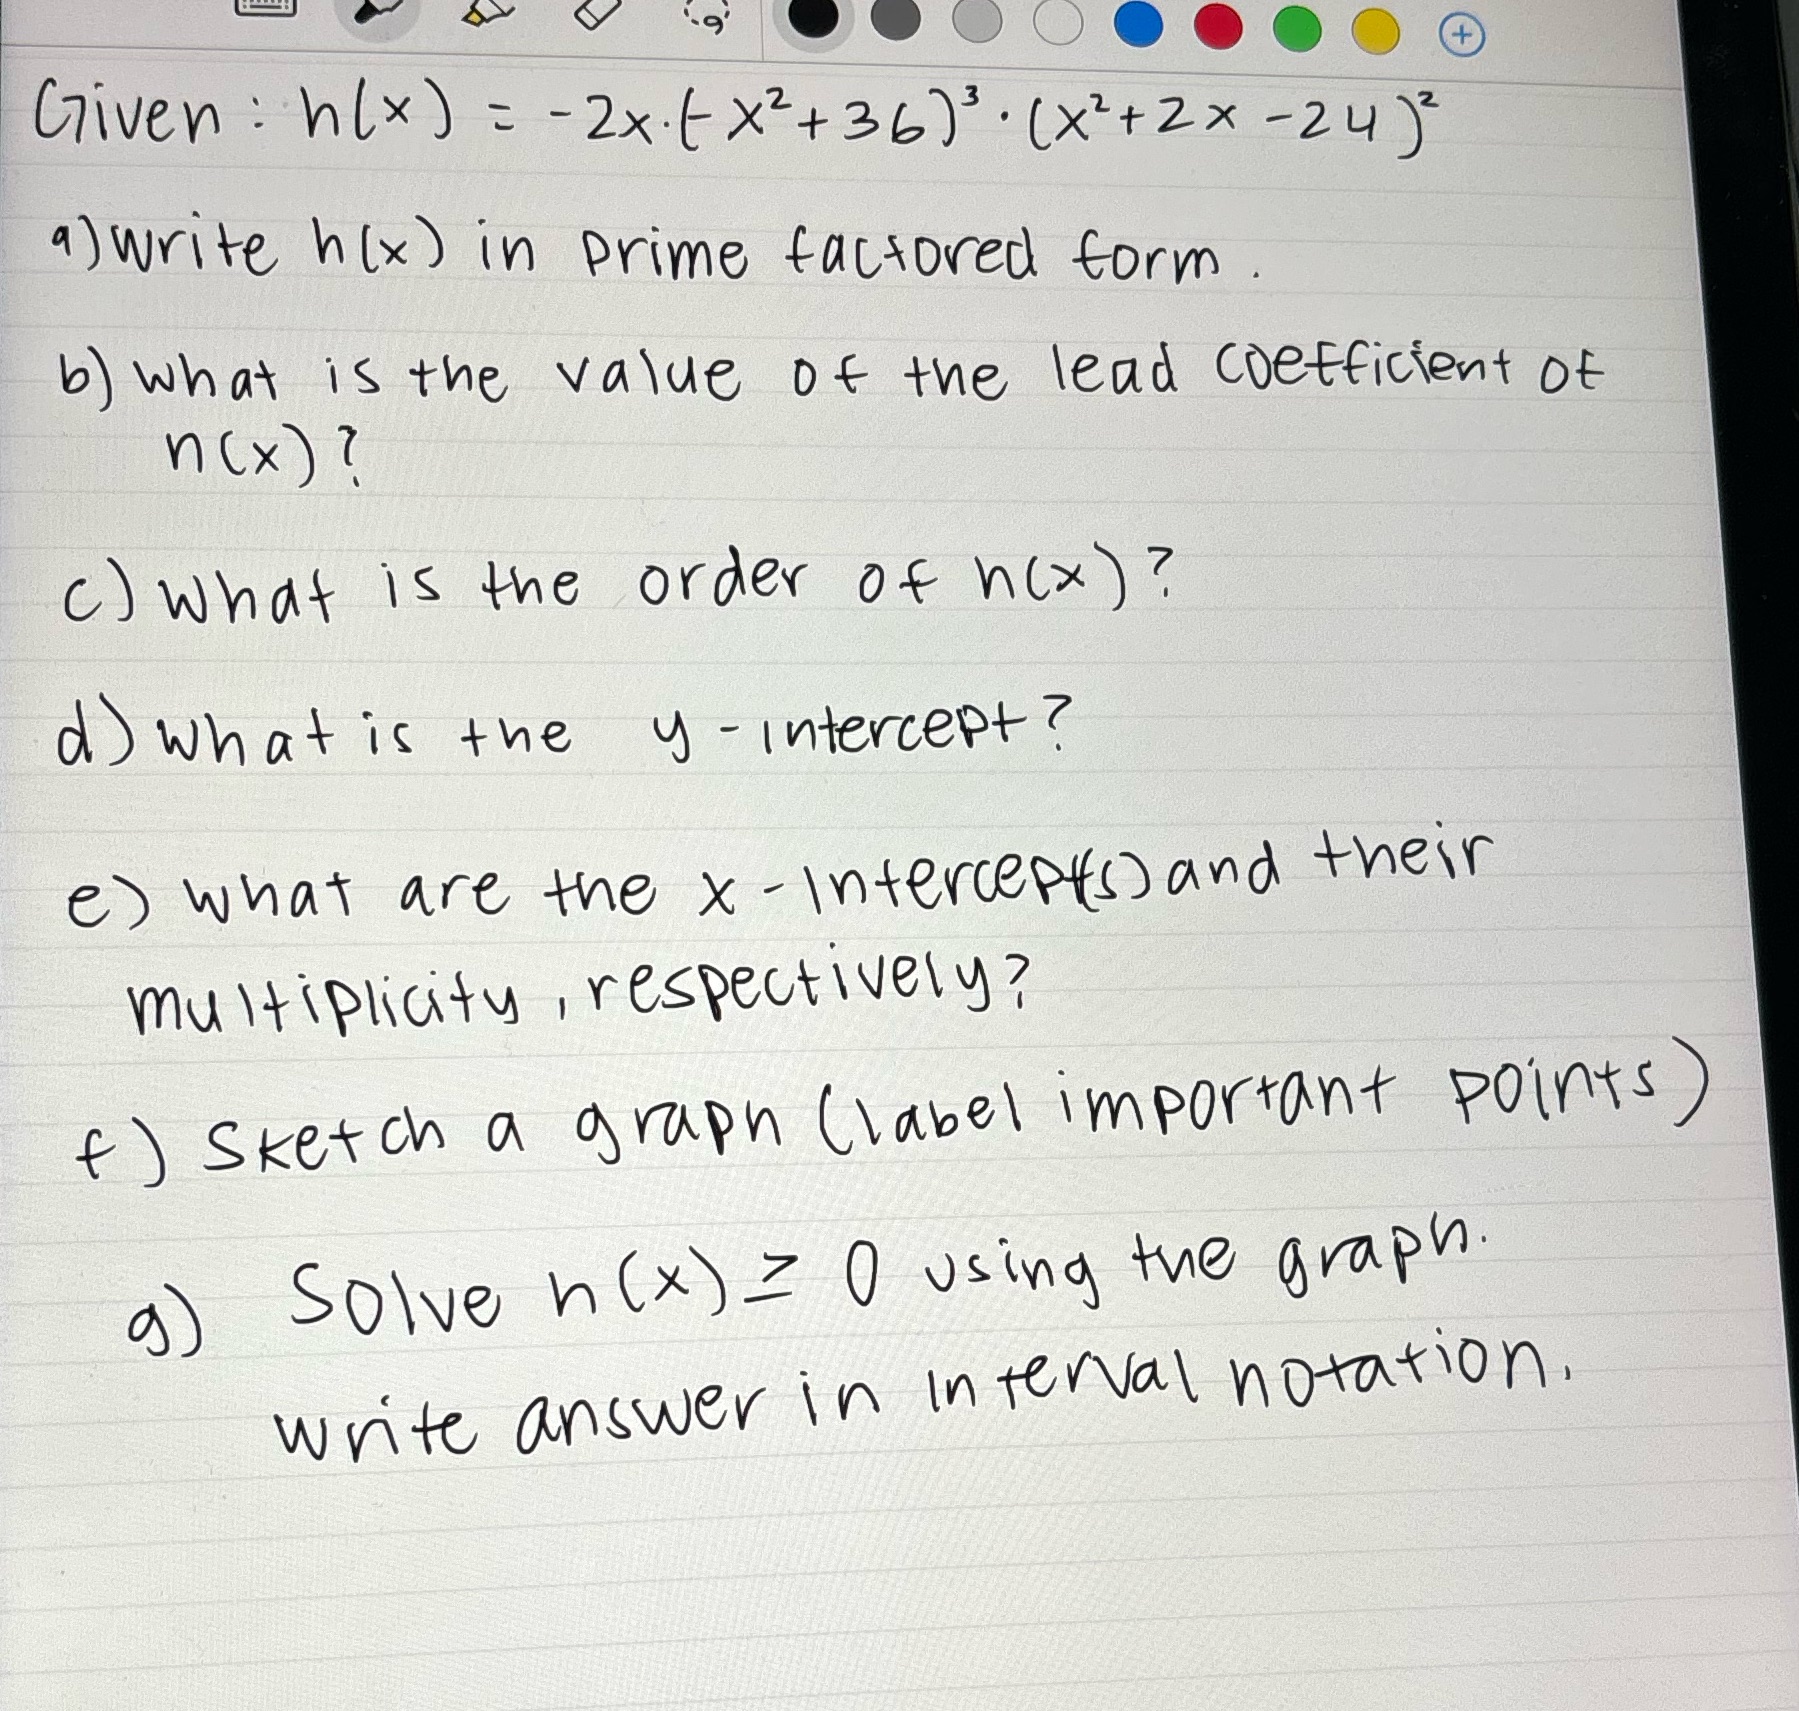 Given: h(x) = -2x·(-x²+36)³·(x²+2x-24)²
a) write h(x) in prime factored form.
b) what is the value of the lead coefficient of
h(x)?
c) what is the order of h(x)?
d) what is the y-intercept?
e) what are the x-intercept(s) and their
multiplicity, respectively?
f) sketch a graph (label important points)
g) Solve h(x) ≥ 0 using the graph.
write answer in interval notation.